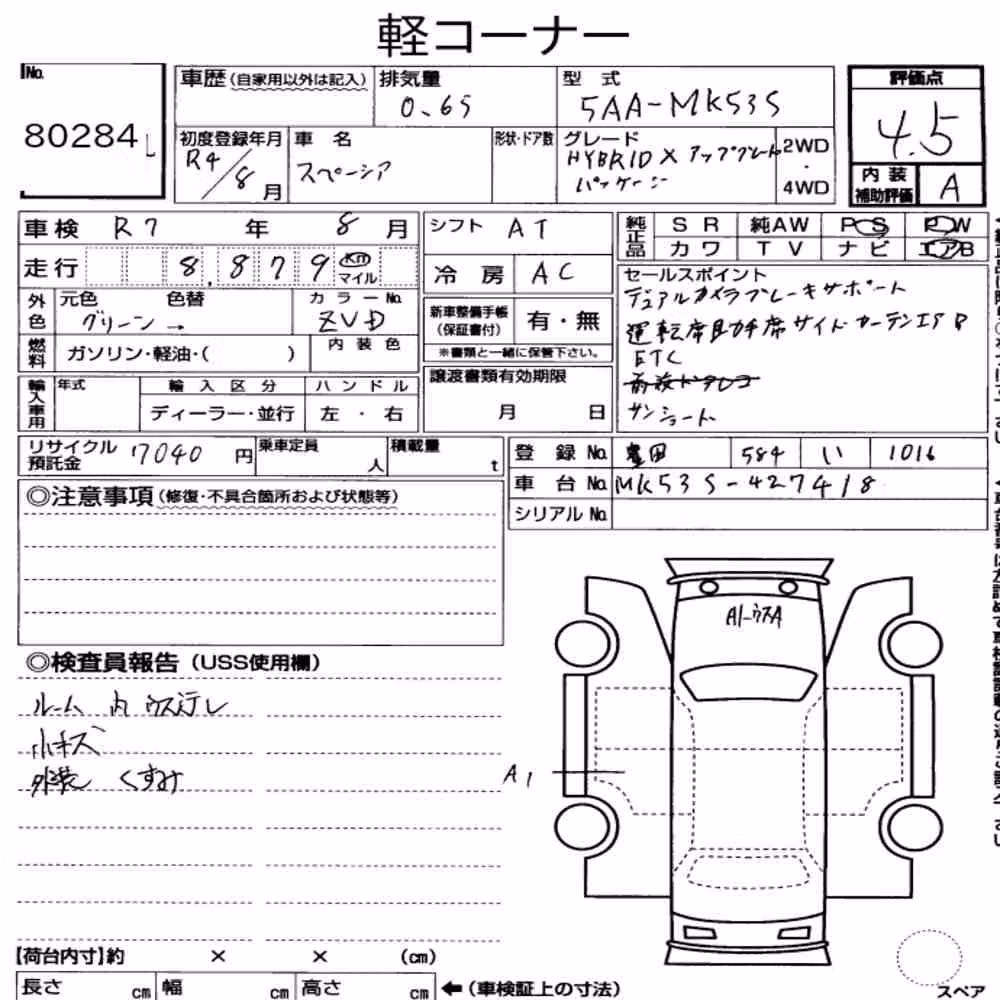 軽コーナー
No.
80284
車歴 (自家用以外は記入)
排気量
0.65
型式
5AA-MK53S
評価点
4.5
初度登録年月
R4/8月
車名
スペーシア
形状・ドア数
グレード
HYBRID X アップグレード
パッケージ
2WD
・
4WD
内装
補助評価
A
車検 R7年 8月
シフト AT
純正品
SR
純AW
PS
PW
カワ
TV
ナビ
エアB
走行 8,879 Km
マイル
冷房 AC
セールスポイント
デュアルカメラブレーキサポート
運転席助手席サイドカーテンエアB
ETC
サンシェード
外色
元色
色替
グリーン→
カラーNo.
ZVD
新車整備手帳
(保証書付)
有・無
※書類と一緒に保管下さい。
燃料
ガソリン・軽油・( )
内装色
輸入車用
年式
輸入区分
ハンドル
ディーラー・並行
左・右
譲渡書類有効期限
月 日
リサイクル
預託金
17040円
乗車定員
人
積載量
t
登録No. 豊田 584 い 1016
車台No. MK53S-427418
シリアルNo.
◎注意事項(修復・不具合箇所および状態等)
◎検査員報告(USS使用欄)
ルーム内ウス汚レ
小キズ
外装 くすみ
A1-ウスA
A1
【荷台内寸】約 × × (cm)
長さ cm
幅 cm
高さ cm
←(車検証上の寸法)
スペア